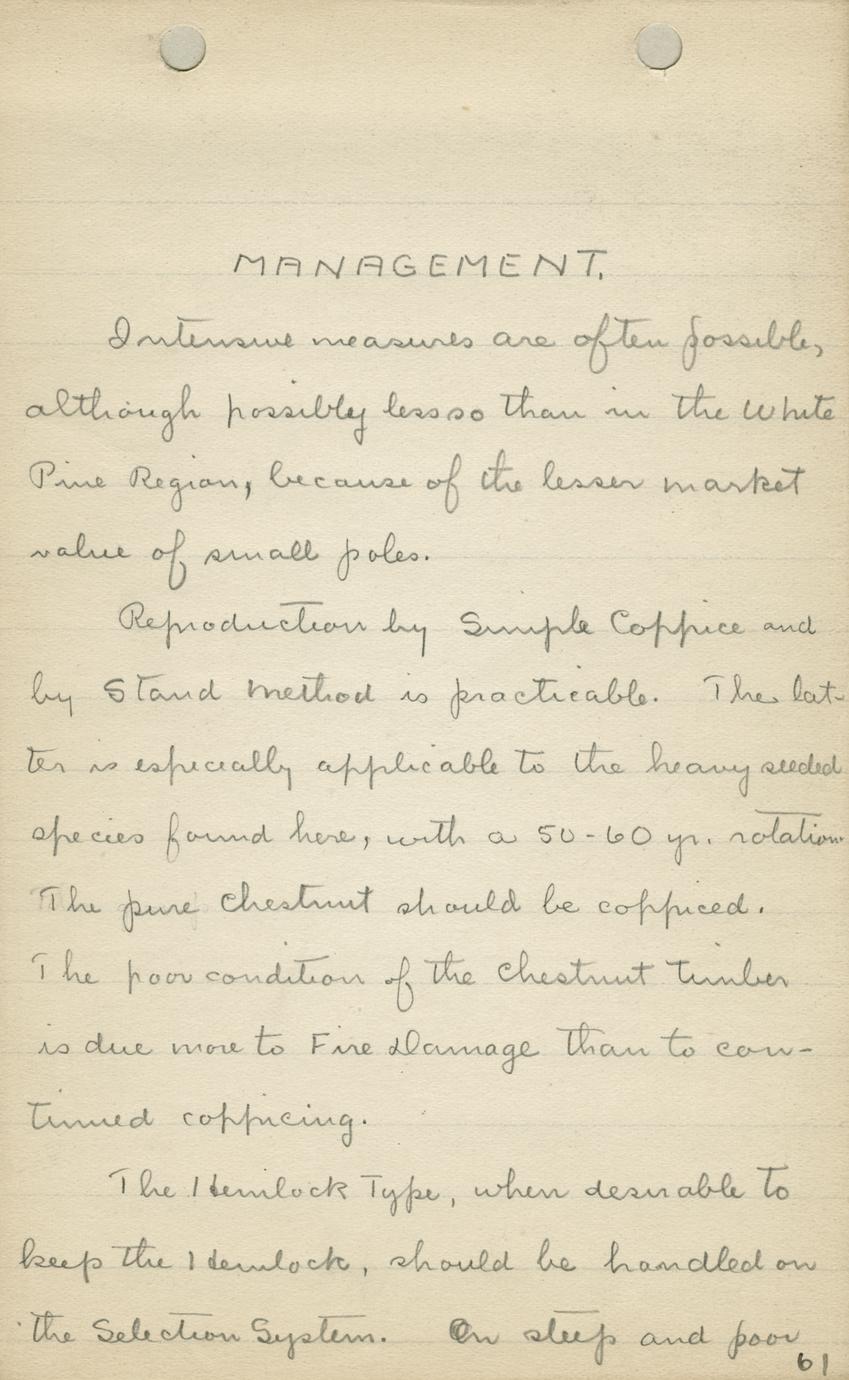 MANAGEMENT.
Intensive measures are often possible,
although possibly less so than in the White
Pine Region, because of the lesser market
value of small poles.
Reproduction by Simple Coppice and
by Stand Method is practicable. The lat-
ter is especially applicable to the heavy seeded
species found here, with a 50-60 yr. rotation.
The pure Chestnut should be coppiced.
The poor condition of the Chestnut timber
is due more to Fire Damage than to con-
tinued coppicing.
The Hemlock Type, when desirable to
keep the Hemlock, should be handled on
the Selection System. On steep and poor
61